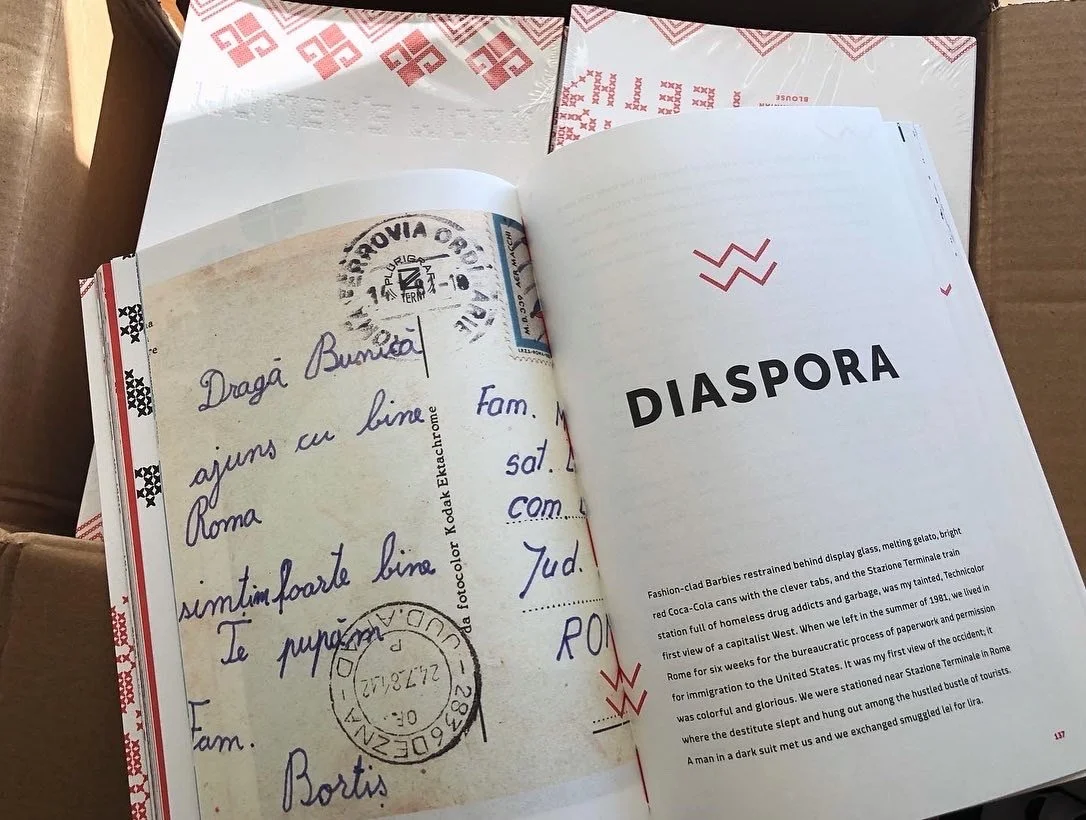 BLOUSE
FERROVIA ORD
ARIE
M. D. 000 F.B. MACCHI
Dragă Bunică
ajuns cu bine
Roma
simțim foarte bine
Te pupăm
Fam.
Bortiș
da fotocolor Kodak Ektachrome
Fam.
sat.
com.
Jud.
2836 DEZNA JUD. A
OF. P
DIASPORA
Fashion-clad Barbies restrained behind display glass, melting gelato, bright
red Coca-Cola cans with the clever tabs, and the Stazione Terminale train
station full of homeless drug addicts and garbage, was my tainted, Technicolor
first view of a capitalist West. When we left in the summer of 1981, we lived in
Rome for six weeks for the bureaucratic process of paperwork and permission
for immigration to the United States. It was my first view of the occident; it
was colorful and glorious. We were stationed near Stazione Terminale in Rome
where the destitute slept and hung out among the hustled bustle of tourists.
A man in a dark suit met us and we exchanged smuggled lei for lira.
117